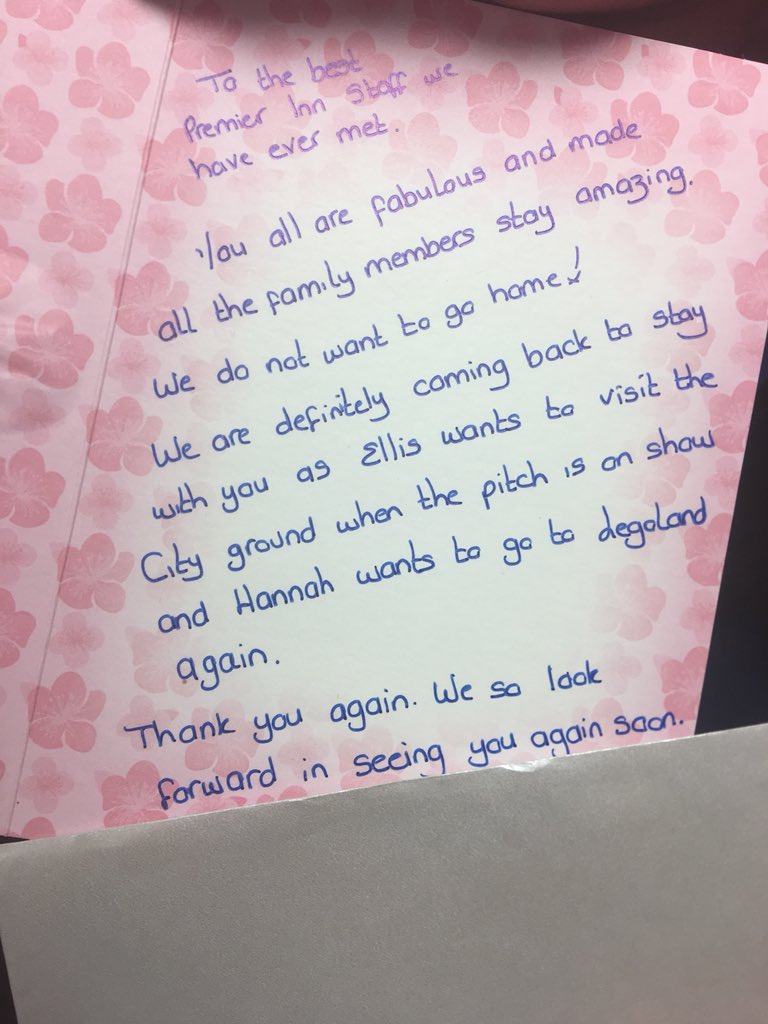 To the best
Premier Inn Staff we
have ever met.
You all are fabulous and made
all the family members stay amazing.
We do not want to go home!
We are definitely coming back to stay
with you as Ellis wants to visit the
City ground when the pitch is on show
and Hannah wants to go to degoland
again.
Thank you again. We so look
forward in seeing you again soon.